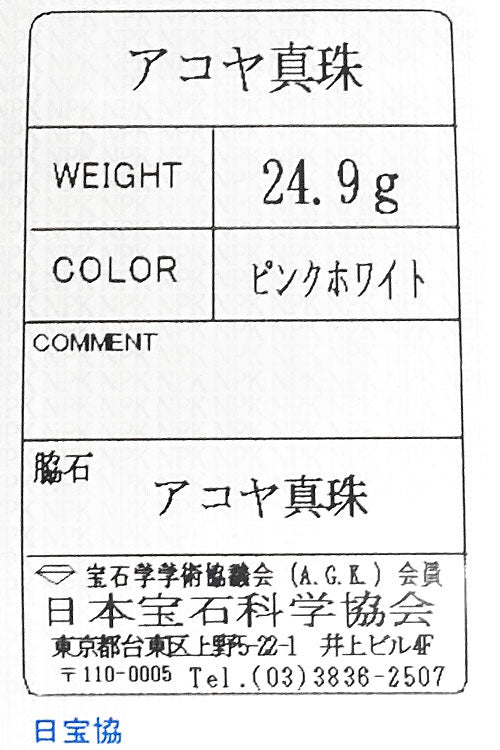 アコヤ真珠
WEIGHT 24.9g
COLOR ピンクホワイト
COMMENT
脇石
アコヤ真珠
宝石学学術協議会 (A.G.K.) 会員
日本宝石科学協会
東京都台東区上野5-22-1 井上ビル4F
〒110-0005 Tel.(03)3836-2507
日宝協